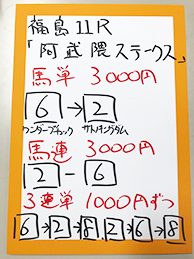 福島11R
「阿武隈ステークス」
馬単 3000円
6→2
ワンダープチュック サトノキングダム
馬連 3000円
2-6
3連単 1000円ずつ
6→2→8,2→6→8